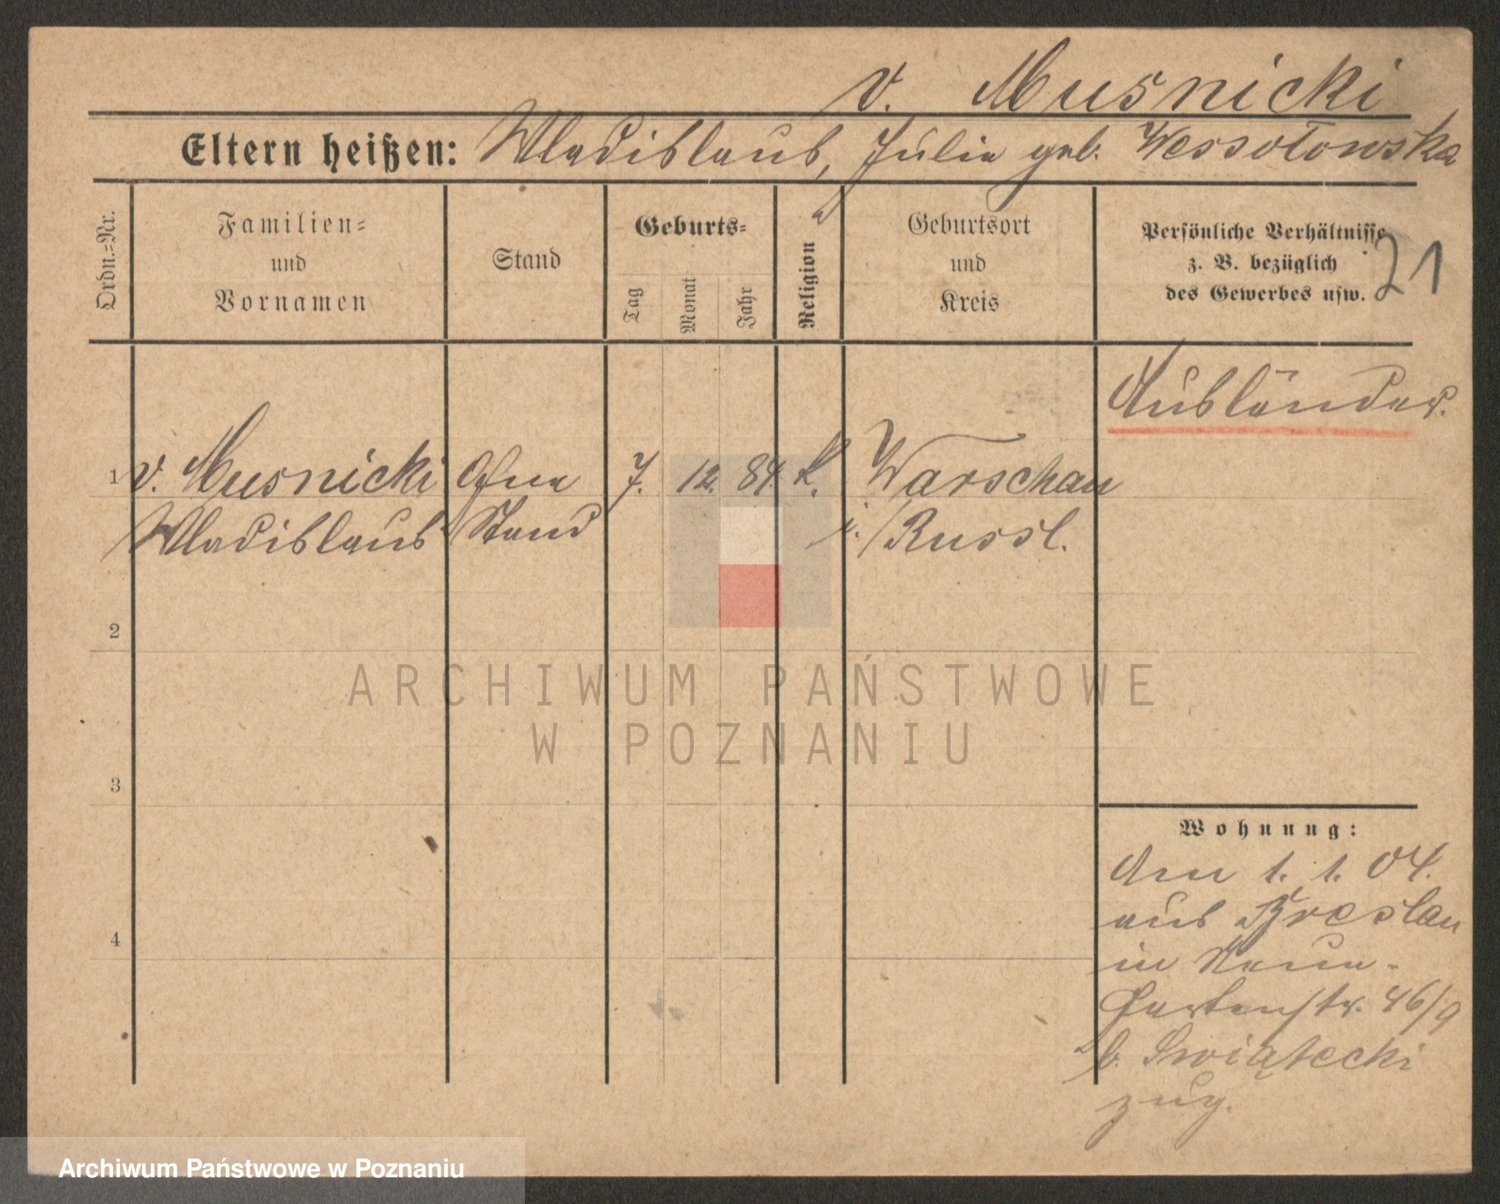 v. Musnicki
Eltern heißen: Wladislaus, Julie geb. Wessołowska
Ordn.-Nr.
Familien-
und
Vornamen
Stand
Geburts-
Tag
Monat
Jahr
Religion
Geburtsort
und
Kreis
Persönliche Verhältnisse
z. B. bezüglich
des Gewerbes usw.
21
Ausländer.
1 v. Musnicki Ohne 7. 12. 84. k. Warschau
Wladislaus Stand i. Russl.
2
3
4
ARCHIWUM PAŃSTWOWE
W POZNANIU
Wohnung:
Am 1. 1. 04.
aus Breslau
in
Gartenstr. 46/9
b. Swiątecki
zug.
Archiwum Państwowe w Poznaniu